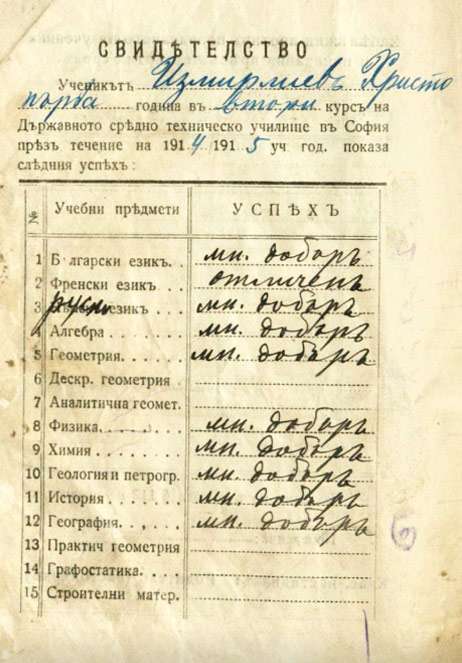 СВИДѢТЕЛСТВО
Ученикътъ Измирлиевъ Христо
първа година въ втори курсъ на
Държавното срѣдно техническо училище въ София
прѣзъ течение на 1914/1915 уч год. показа
слѣдния успѣхъ:
№ Учебни прѣдмети УСПѢХЪ
1 Български езикъ. . мн. добъръ
2 Френски езикъ . . отличенъ
3 Руски езикъ . . мн. добъръ
4 Алгебра . . . . . мн. добъръ
5 Геометрия. . . . . . мн. добъръ
6 Дескр. геометрия
7 Аналитична геомет.
8 Физика. . . . . . мн. добъръ
9 Химия . . . . . . мн. добъръ
10 Геология и петрогр. мн. добъръ
11 История. . . . . . мн. добъръ
12 География. . . . . мн. добъръ
13 Практич геометрия
14 Графостатика. . . .
15 Строителни матер.